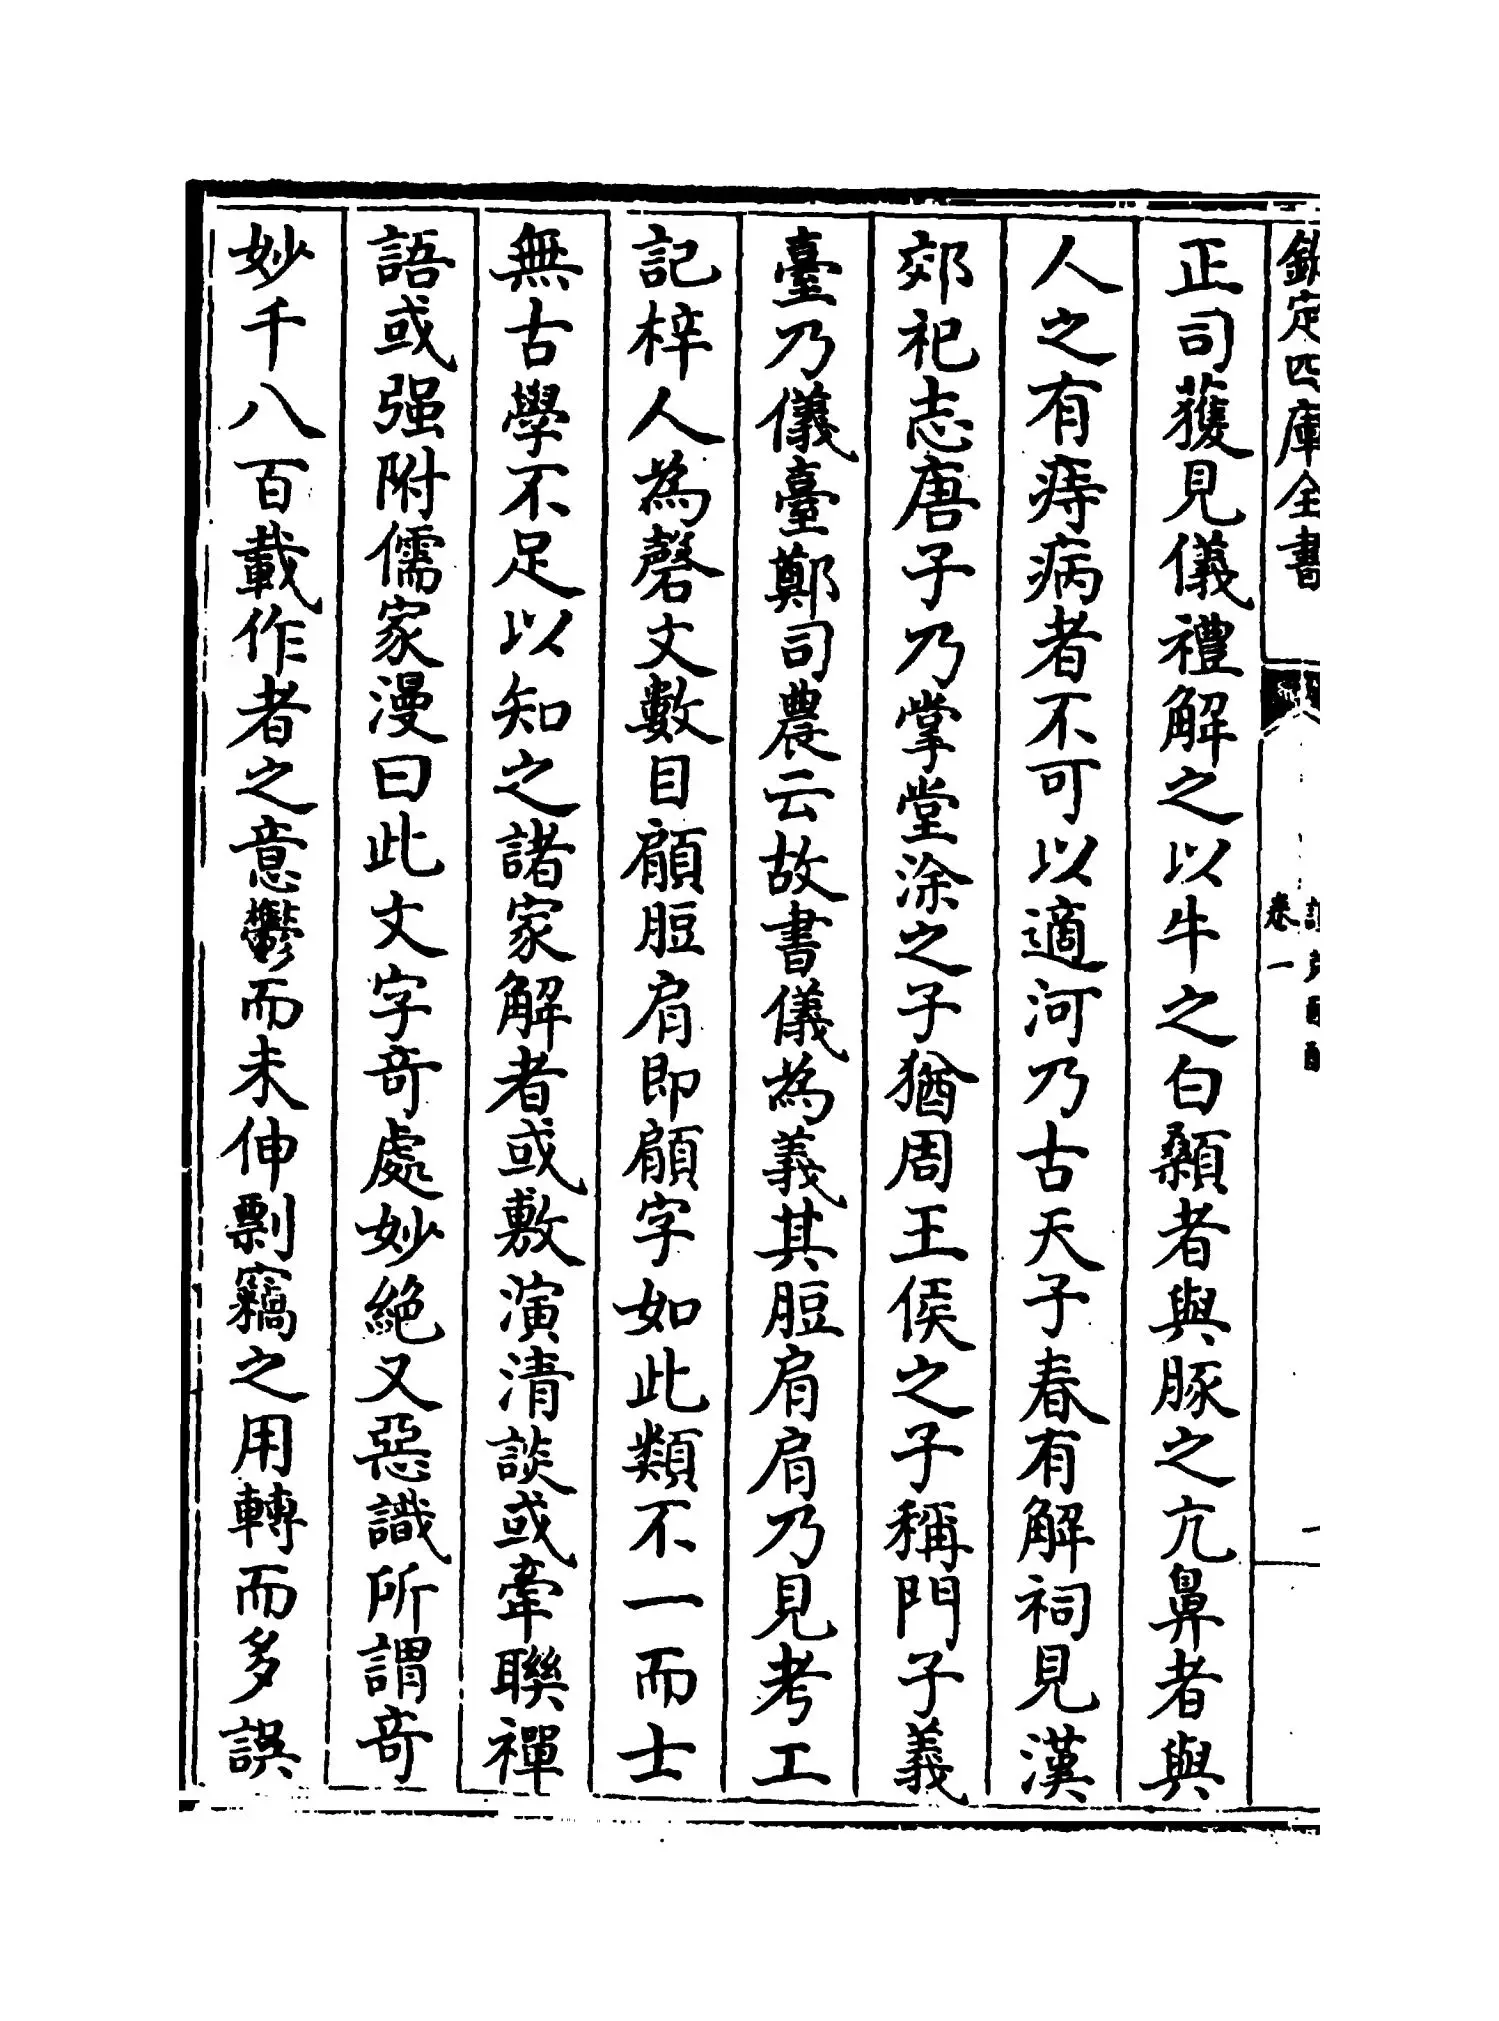 欽定四庫全書
卷一
正司獲見儀禮解之以牛之白顙者與豚之亢鼻者與
人之有痔病者不可以適河乃古天子春有解祠見漢
郊祀志唐子乃掌堂涂之子猶周王侯之子稱門子義
臺乃儀臺鄭司農云故書儀為義其脰肩肩乃見考工
記梓人為磬文數目顅脰肩即顅字如此類不一而士
無古學不足以知之諸家解者或敷演清談或牽聯禪
語或强附儒家漫曰此文字奇處妙絕又惡識所謂奇
妙千八百載作者之意鬱而未伸剽竊之用轉而多誤